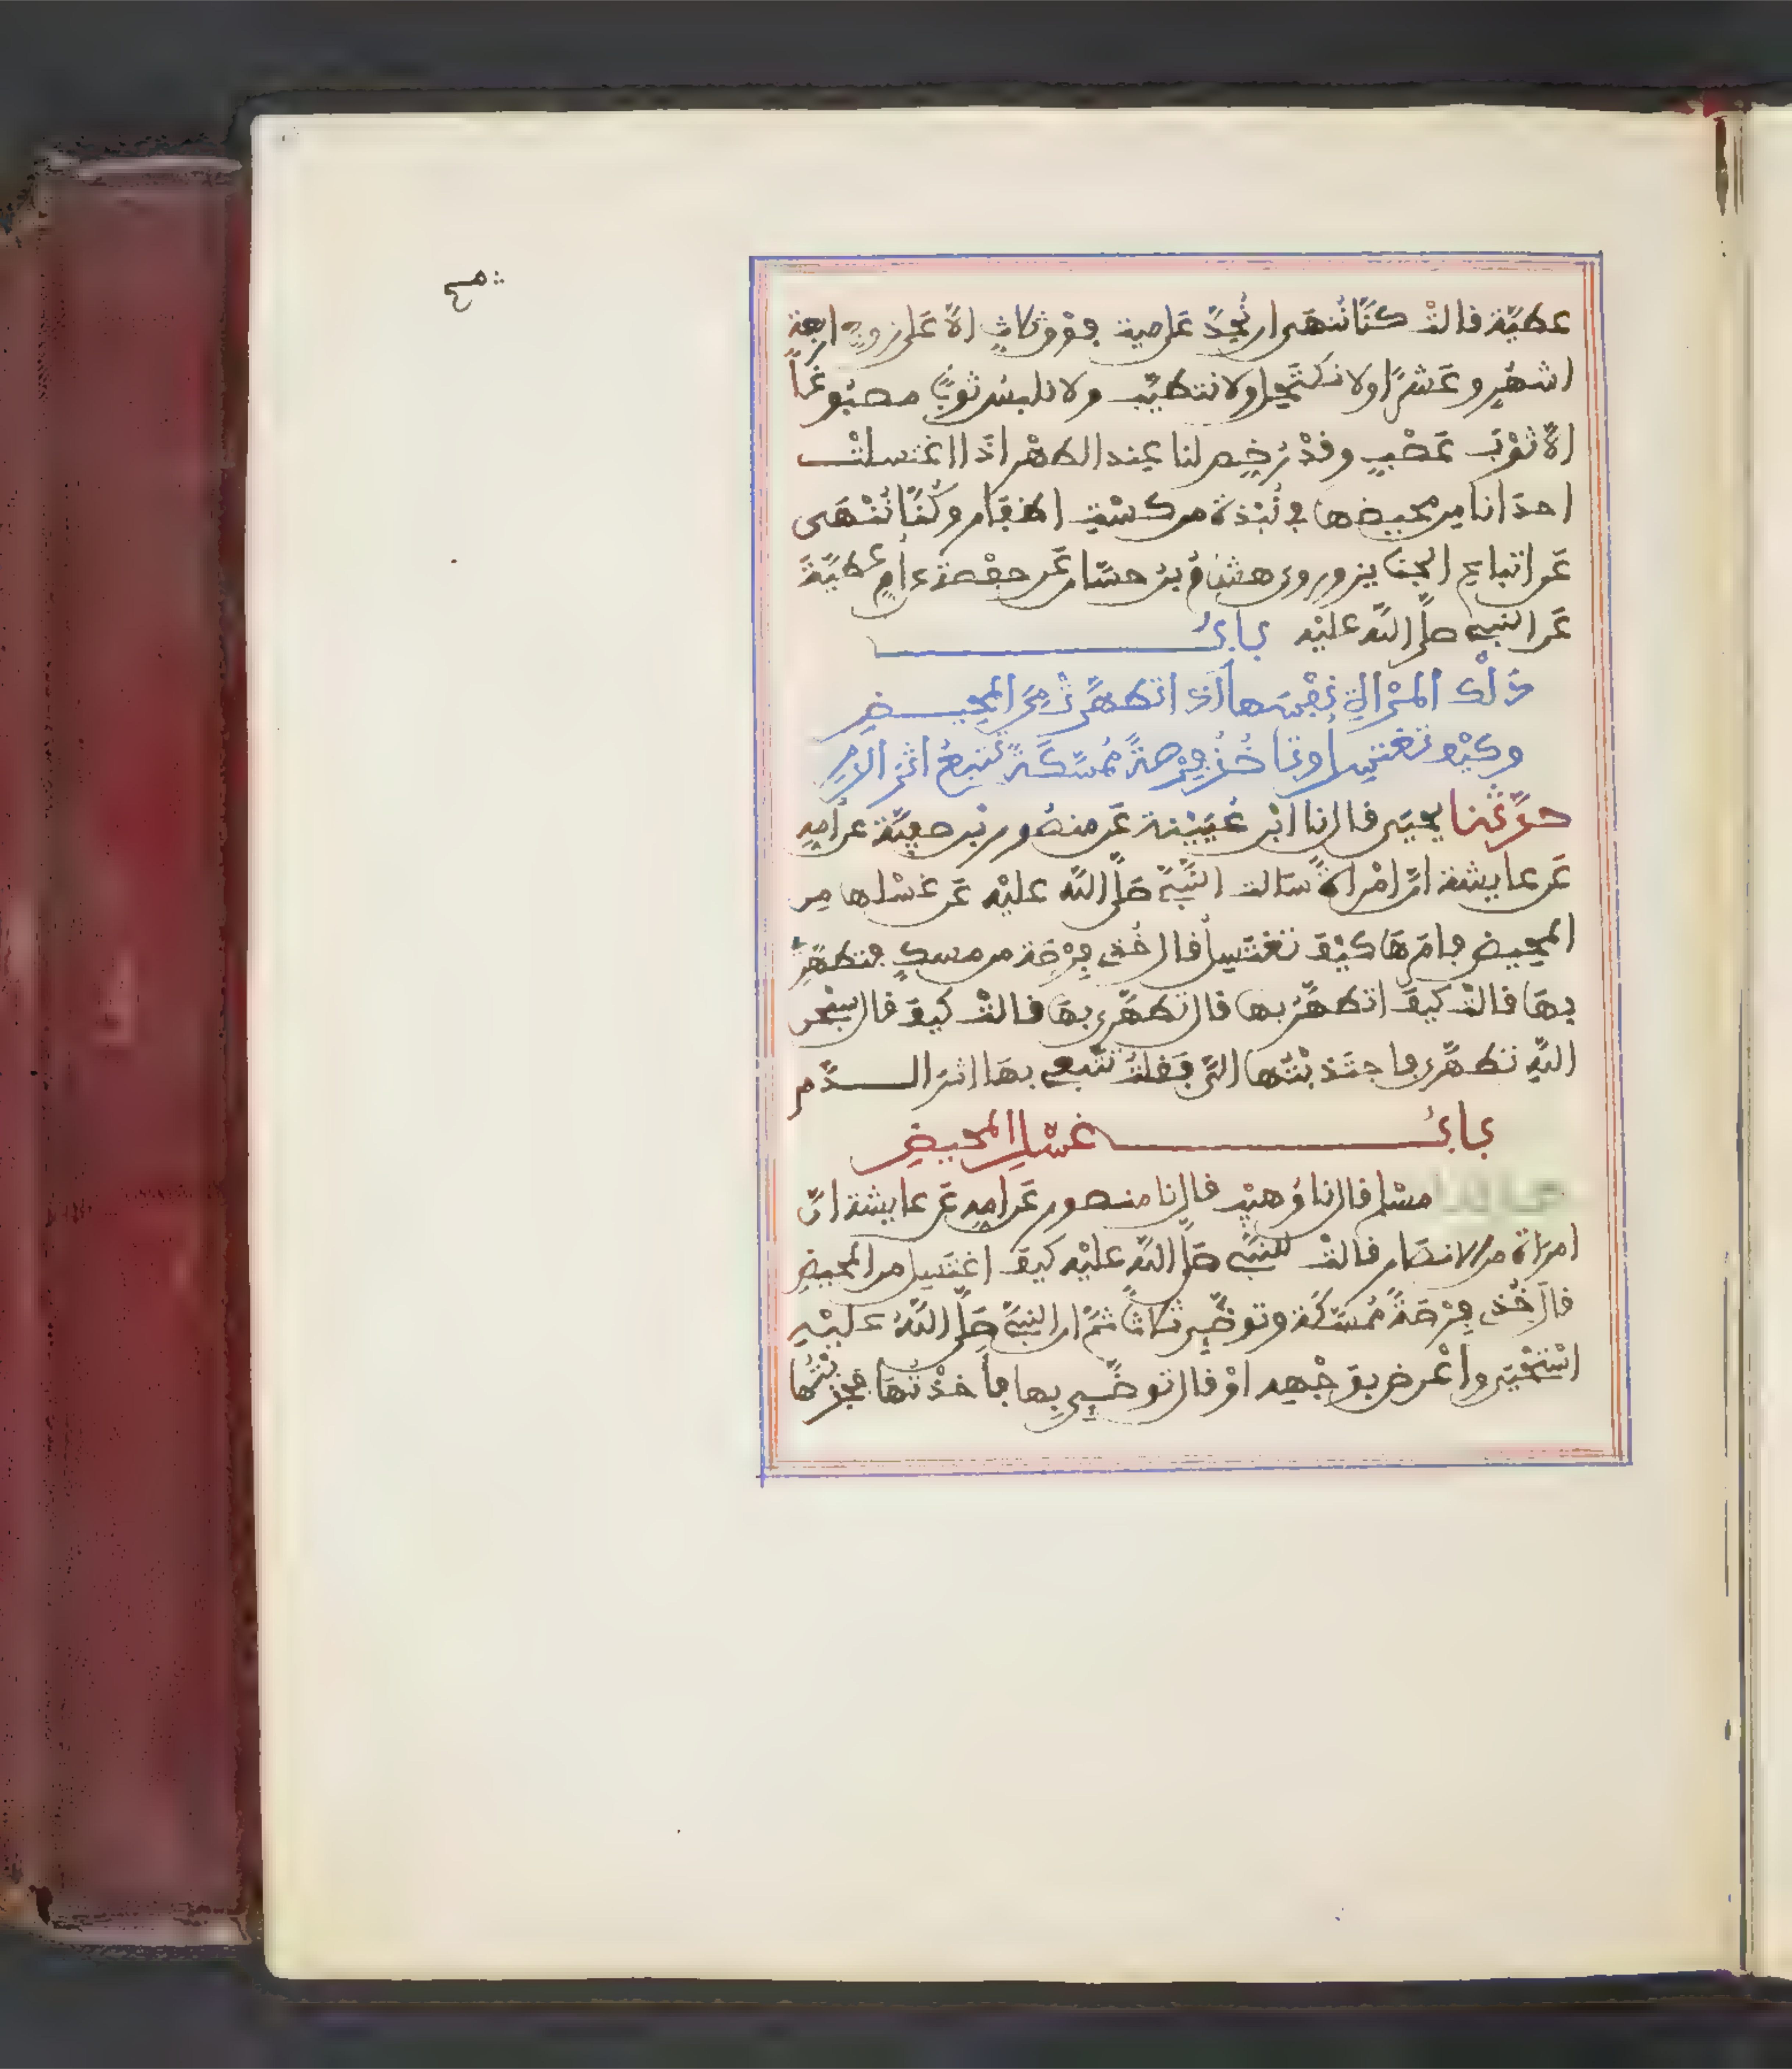 عطيّة قالتْ كنّا نُنهَى ان نُحِدَّ عَلى ميت فوْق ثلاثٍ الاّ عَلى زوجٍ اربعة
اشهُرٍ وعَشْرًا ولا نكتَحِل ولا نتطيّب ولا نلبسُ ثوبًا مصبُوغًا
الاّ ثوْبَ عَصْبٍ وقدْ رُخِّص لنا عِند الطهْر اذَا اغتسلتْ
احدَانا مِن محيضها في نُبْذة من كسْتِ اظفار وكُنّا نُنْهَى
عَن اتباعِ الجنايز وروى هشامُ بنُ حسّان عَن حفْصةَ عن أم عطيّةَ
عَن النبي صلَّى اللّه عليْه بابُ
دَلْك المرْأةِ نفْسَها اذا تطهّرتْ مِنَ المحِيضِ
وكيْف تغتسِل وتاخُذ فِرْصةً مُمسّكَةً تتبعُ اثر الدمِ
حدّثنا يحيَى قال نا ابْن عُيَيْنة عَن منصُور بْن صفِيّة عن أمهِ
عَن عايشة انّ امْرأةً سَالت النّبيَّ صَلَّى اللّه عليْه عَن غسْلها مِن
المحِيض فامَرهَا كيْفَ تغْتَسِلُ قال خُذي فِرْصَة من مسكٍ فتطهّرِي
بهَا قالتْ كيفَ اتطهَّرُ بها قال تطهّرِي بهَا قالتْ كيفَ قال سبْحن
اللّهِ تطهّرِي فاجتَذبْتُها اليَّ فَقلتُ تتّبعي بهَا اثرَ الدّم
بابُ غسْلِ المحيضِ
مسْلم قال نا وُهيْب قال نا منصور عَن امهِ عَن عايشة انّ
امرَاة من الانصَار قالتْ للنبيّ صَلَّى اللّه عليْه كيفَ اغتَسِل من المحيضِ
قالَ خُذي فِرْصَةً مُمسّكَة وتوضّئي ثلاثًا ثمّ ان النبيَّ صَلَّى اللّهُ عليْهِ
اسْتَحْيَى واعْرض بوَجْهِه اوْ قال توضّئي بِها فأخذْتُهَا فجذبْتُها